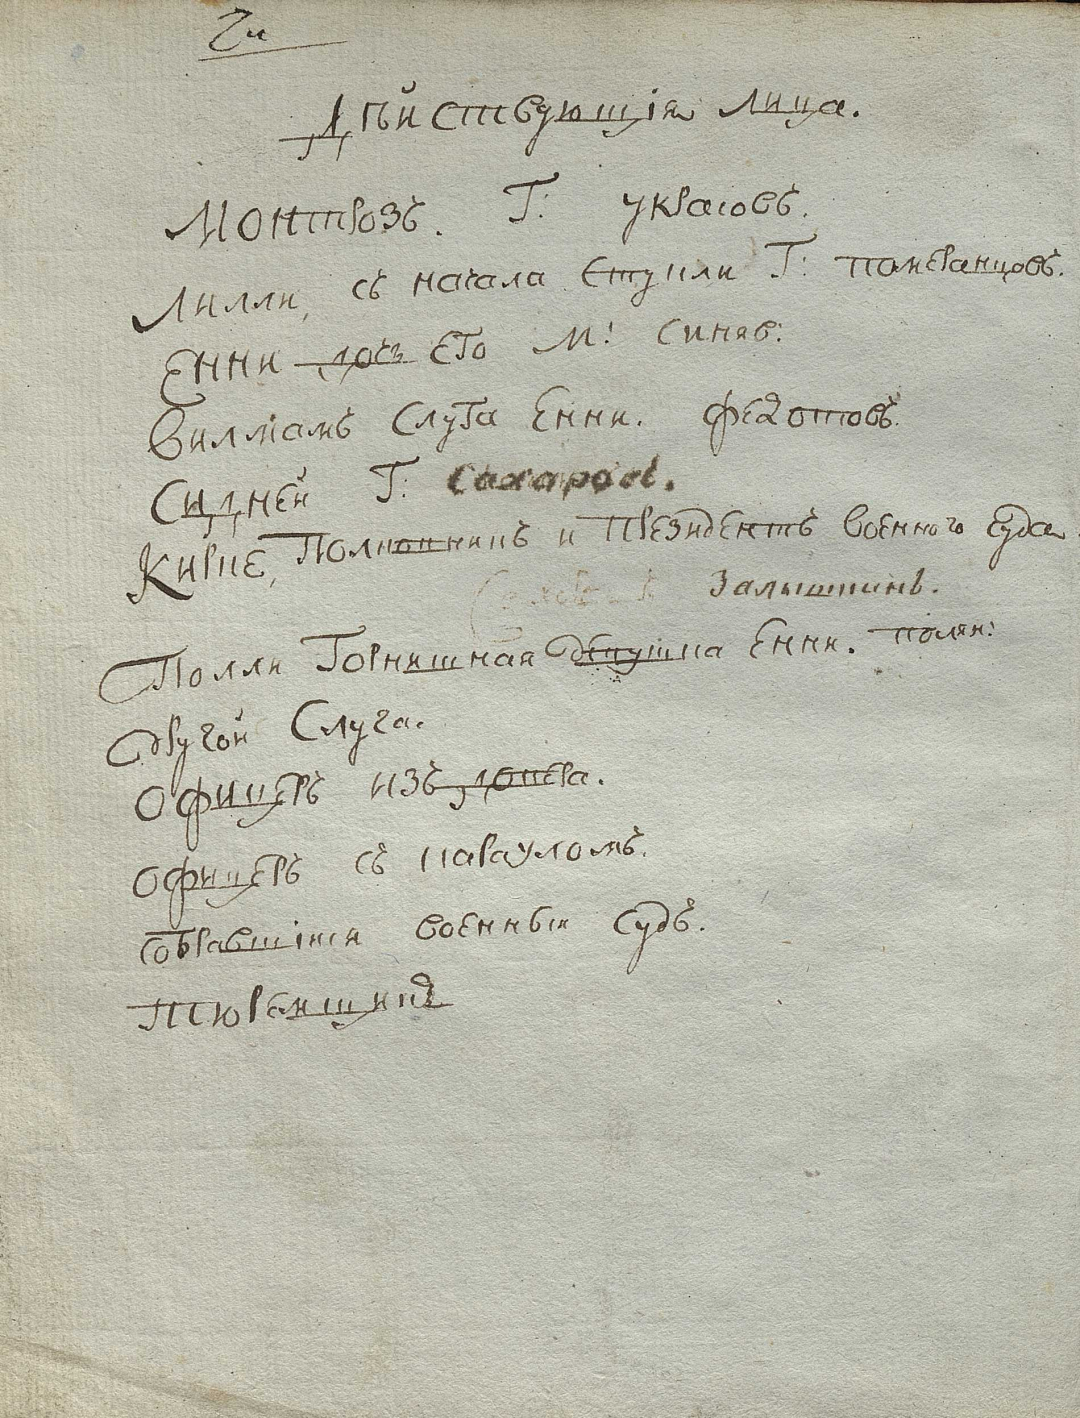 Дѣйствующія лица.
Монтрозъ. Г: Украсовъ.
Лилли, съ начала Стуили Г: померанцовъ.
Енни дочь его М: Синяв:
Вилліамъ Слуга Енни. федотовъ.
Сидней Г: Сахаровъ.
Кирке, Полковникъ и Президентъ военного Суда
Залышкинъ.
Полли Горнишная девушка Енни. поля:
другой Слуга.
Офицеръ изъ
офицеръ съ карауломъ.
собравшійся военный судъ.
тюремщикъ